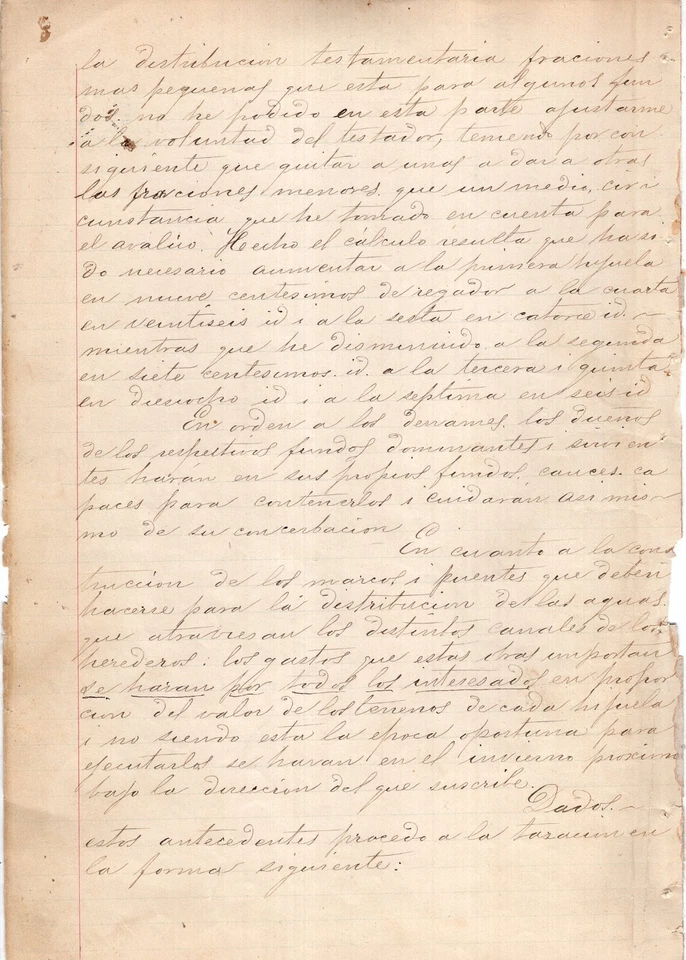 la distribucion testamentaria fraciones
mas pequeñas que esta para algunos fun
dos, no he podido en esta parte ajustarme
a la voluntad del testador, teniendo por con
siguiente que quitar a unas a dar a otras
las fraciones menores, que un medio, cir i
cunstancia que he tomado en cuenta para
el avalúo. Hecho el cálculo resulta que ha si
do necesario aumentar a la primera hijuela
en nueve centesimos de regador a la cuarta
en veintiseis id i a la sesta en catorce id. ~
mientras que he disminuido a la segunda
en siete centesimos. id. a la tercera i quinta
en dieciocho id i a la septima en seis id
En orden a los derrames, los dueños
de los respectivos fundos dominantes i sirvien
tes harán en sus propios fundos, cauces ca
paces para contenerlos i cuidarán asi mis~
mo de su concerbacion
En cuanto a la cons
truccion de los marcos i puentes que deben
hacerse para la distribucion de las aguas
que atraviesan los distintos canales de los
herederos: los gastos que estas obras importan
se haran por todos los interesados en propor
cion del valor de los terrenos de cada hijuela
i no siendo esta la epoca oportuna para
ejecutarlos se haran en el invierno proximo
bajo la direccion del que suscribe.
Dados. ~
estos antecedentes procedo a la tazacion en
la forma siguiente: